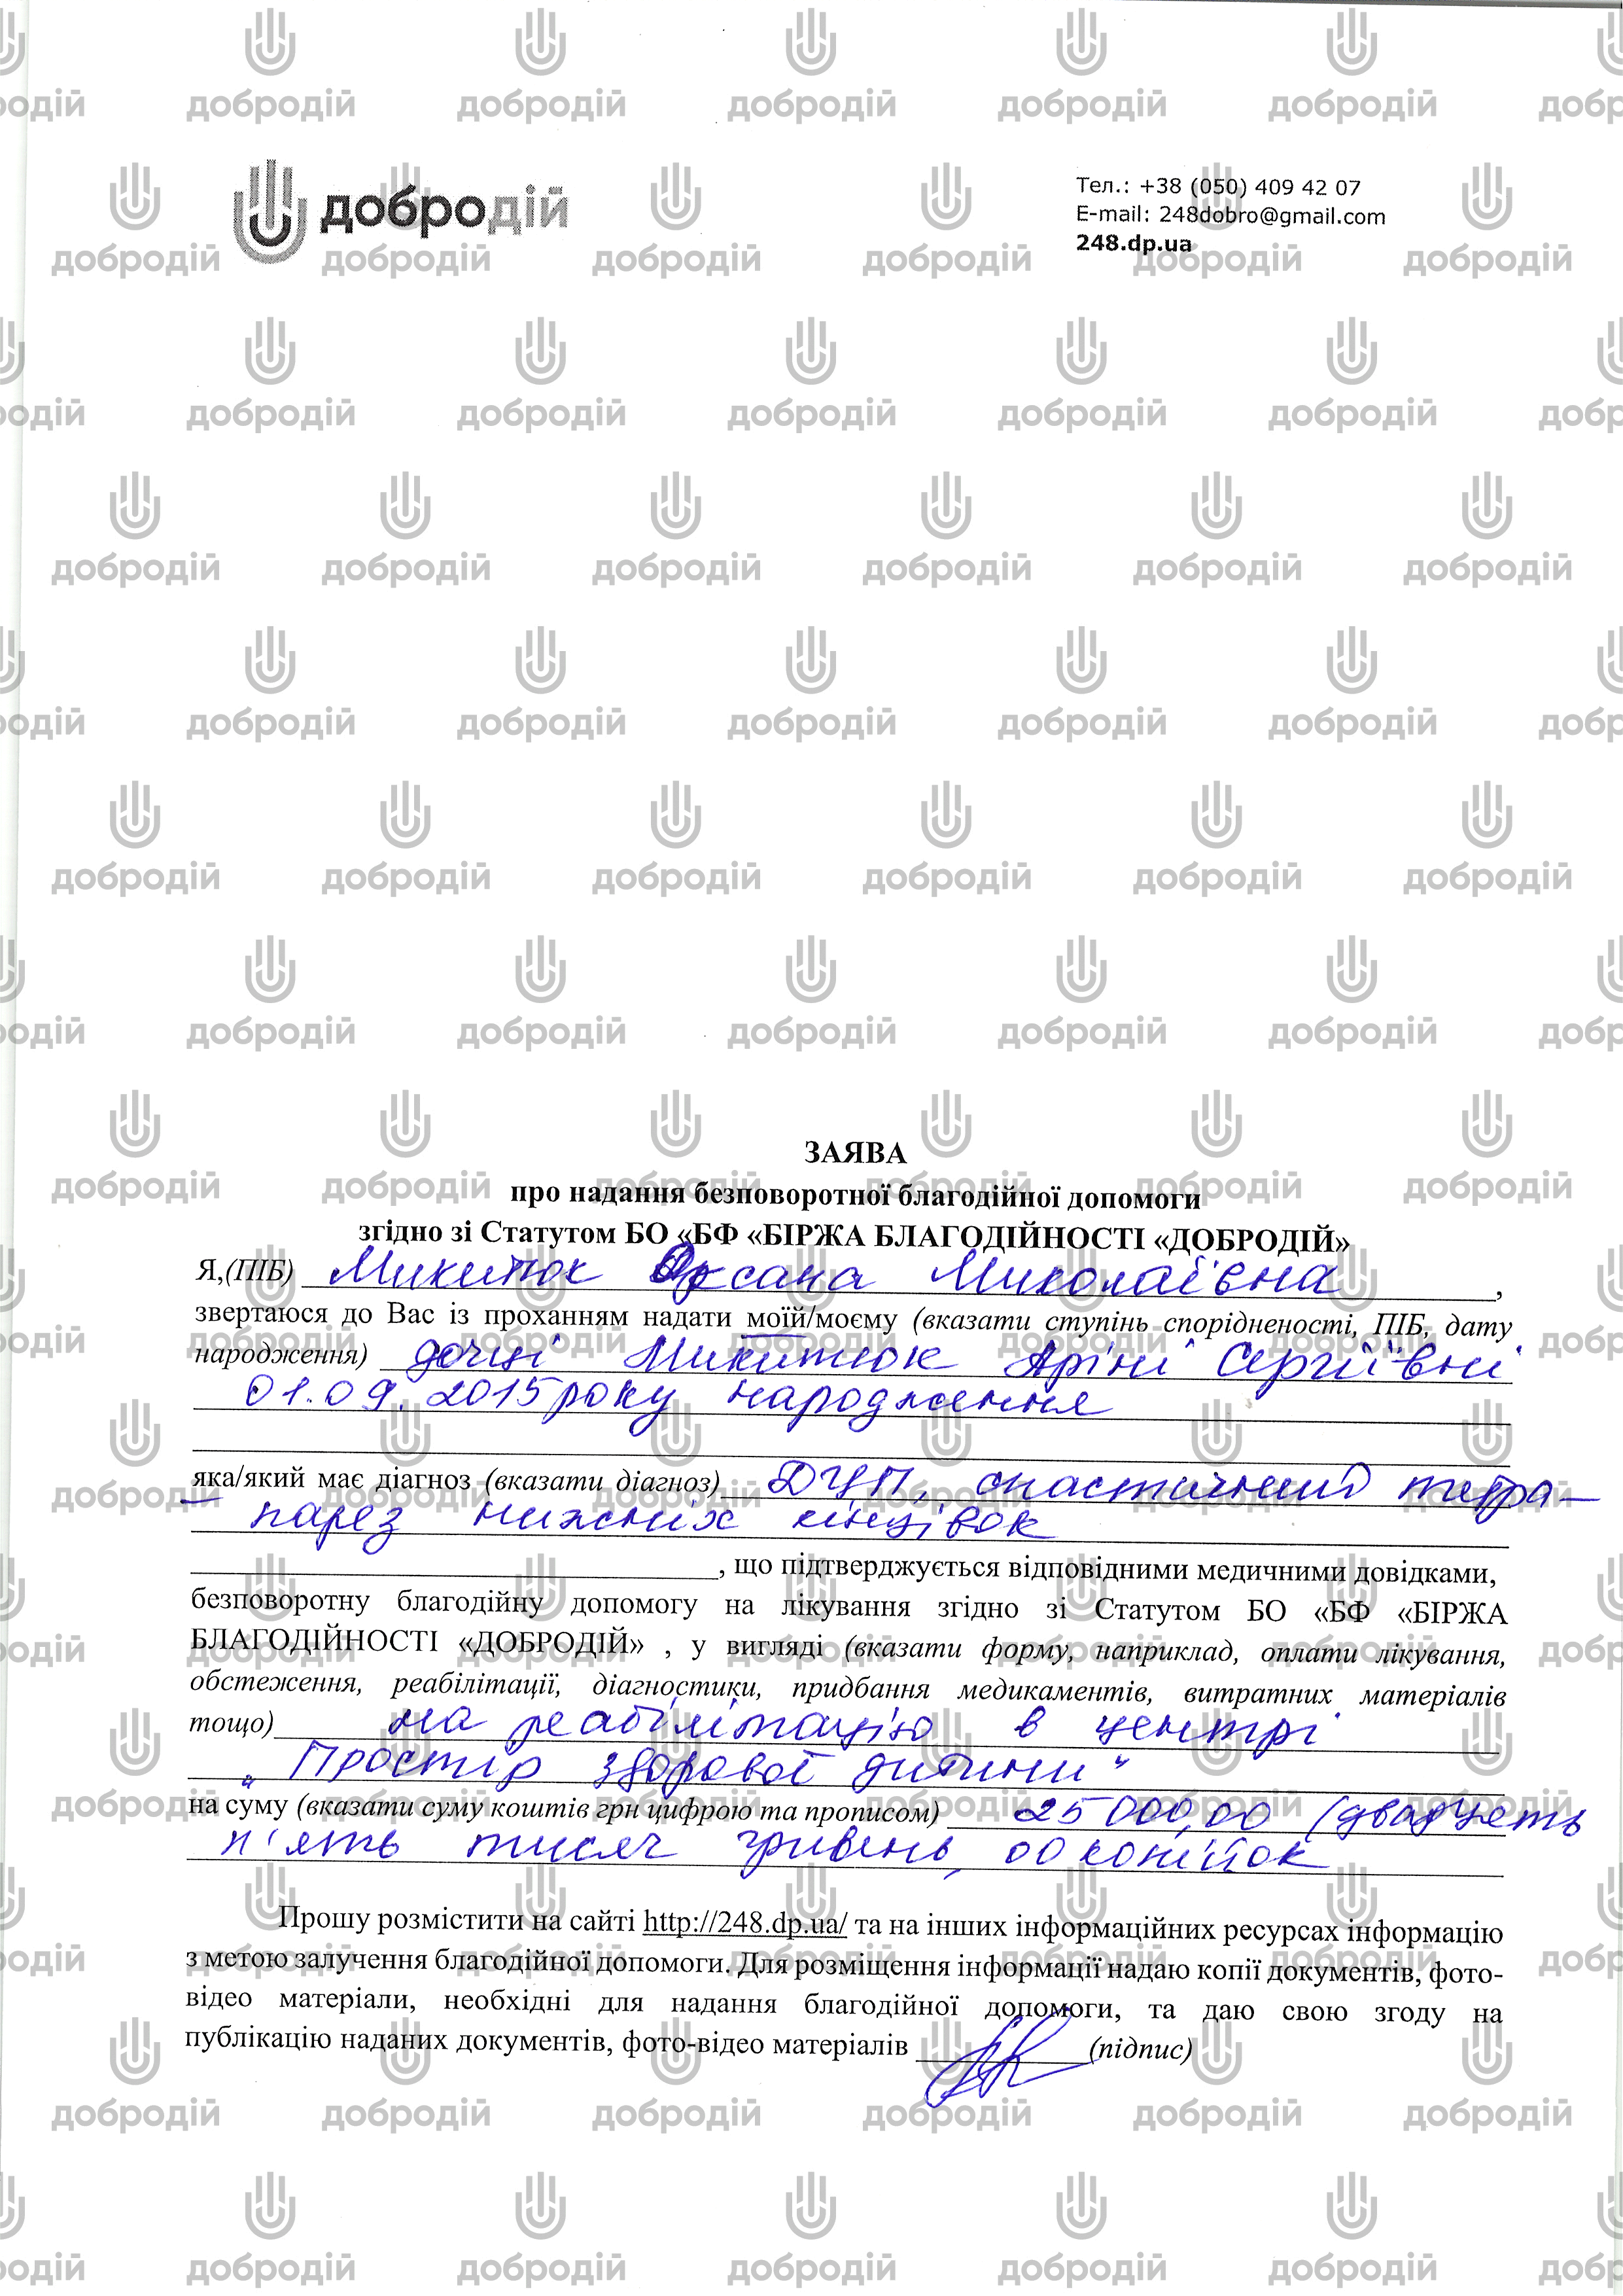 добродій
Тел.: +38 (050) 409 42 07
E-mail: 248dobro@gmail.com
248.dp.ua
ЗАЯВА
про надання безповоротної благодійної допомоги
згідно зі Статутом БО «БФ «БІРЖА БЛАГОДІЙНОСТІ «ДОБРОДІЙ»
Я,(ПІБ) Микитюк Оксана Миколаївна,
звертаюся до Вас із проханням надати моїй/моєму (вказати ступінь спорідненості, ПІБ, дату
народження) дочці Микитюк Аріні Сергіївні
01.09.2015 року народження
яка/який має діагноз (вказати діагноз) ДЦП, спастичний тетра-
- парез нижніх кінцівок
, що підтверджується відповідними медичними довідками,
безповоротну благодійну допомогу на лікування згідно зі Статутом БО «БФ «БІРЖА
БЛАГОДІЙНОСТІ «ДОБРОДІЙ» , у вигляді (вказати форму, наприклад, оплати лікування,
обстеження, реабілітації, діагностики, придбання медикаментів, витратних матеріалів
тощо) на реабілітацію в центрі
„Простір здорової дитини"
на суму (вказати суму коштів грн цифрою та прописом) 25 000,00 (двадцять
п'ять тисяч гривень, 00 копійок
Прошу розмістити на сайті http://248.dp.ua/ та на інших інформаційних ресурсах інформацію
з метою залучення благодійної допомоги. Для розміщення інформації надаю копії документів, фото-
відео матеріали, необхідні для надання благодійної допомоги, та даю свою згоду на
публікацію наданих документів, фото-відео матеріалів (підпис)